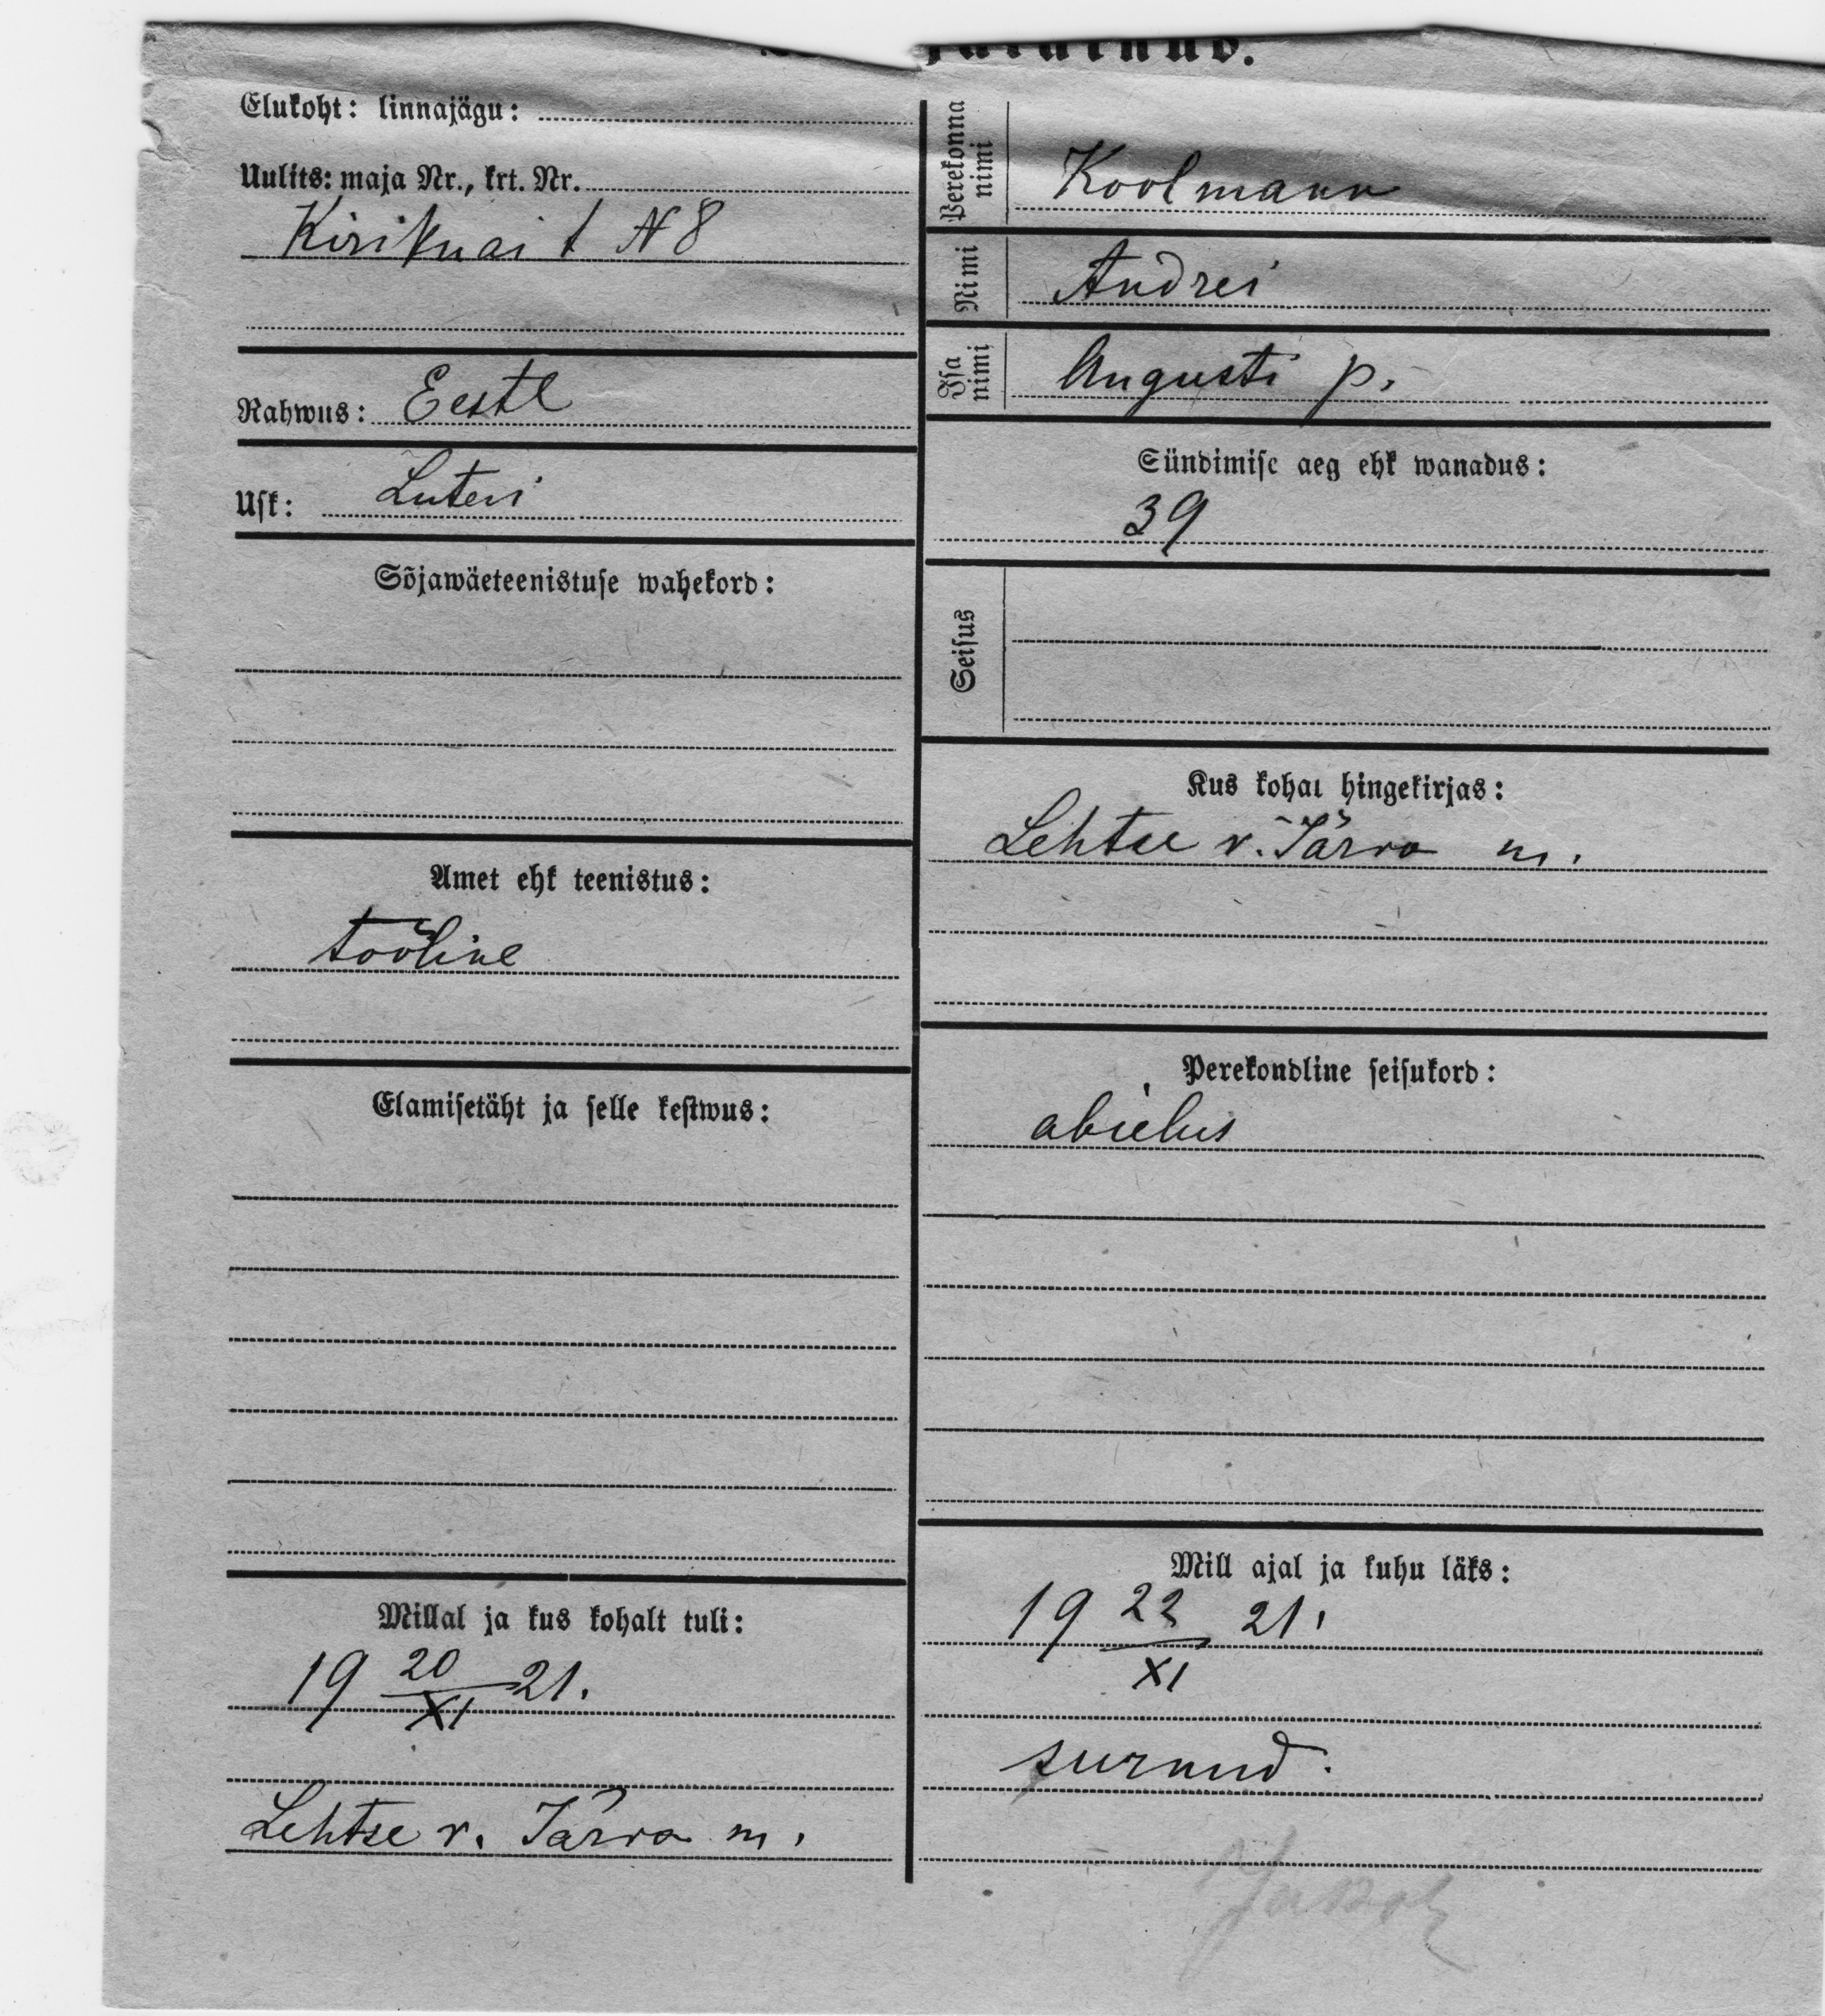 Elukoht: linnajägu:
Uulits: maja Nr., krt. Nr.
Kirikuai t N 8
Rahwus: Eestl
Usk: Luteri
Sõjawäeteenistuse wahekord:
Amet ehk teenistus:
tööline
Elamisetäht ja selle kestwus:
Millal ja kus kohalt tuli:
19 20/XI 21.
Lehtse v. Järva m.
Perekonna nimi
Koolmann
Nimi
Andrei
Isa nimi
Augusti p.
Sündimise aeg ehk wanadus:
39
Seisus
Kus kohal hingekirjas:
Lehtse v. Järva m.
Perekondline seisukord:
abielus
Mill ajal ja kuhu läks:
19 22/XI 21.
surnud.